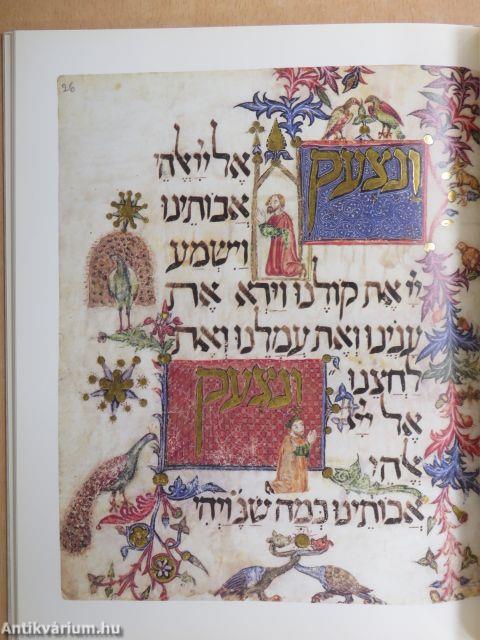 26
ונצעק
אל ייי אלהי
אבותינו
וישמע
יי את קולנו וירא את
ענינו ואת עמלנו ואת
לחצנו
ונצעק
אל ייי
אלהי
אבותינו כמה שנ׳ ויהי
Antikvárium.hu